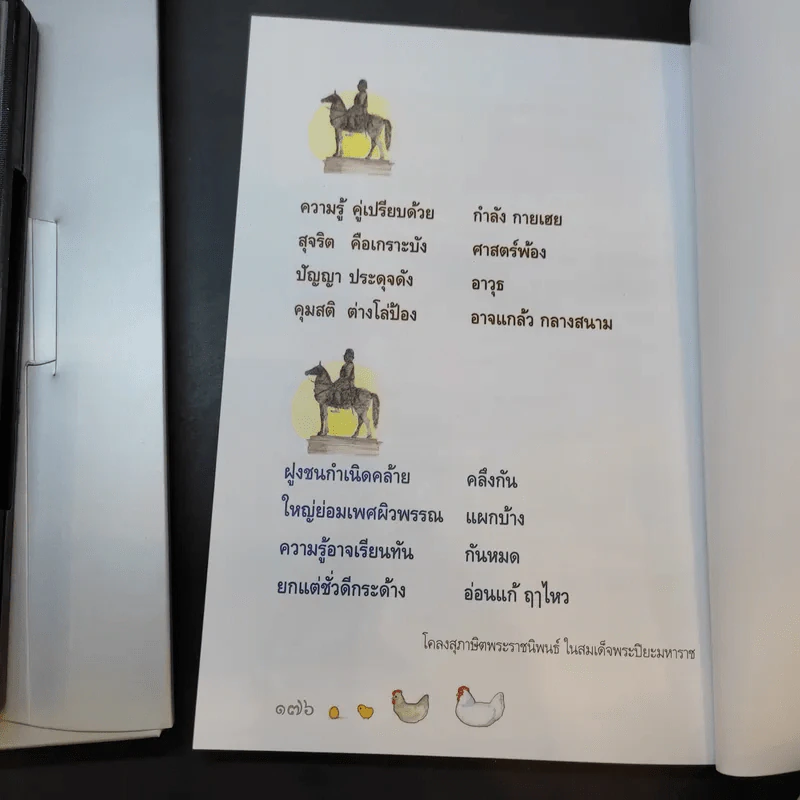 ความรู้ คู่เปรียบด้วย กำลัง กายเฮย
สุจริต คือเกราะบัง ศาสตร์พ้อง
ปัญญา ประดุจดัง อาวุธ
คุมสติ ต่างโล่ป้อง อาจแกล้ว กลางสนาม
ฝูงชนกำเนิดคล้าย คลึงกัน
ใหญ่ย่อมเพศผิวพรรณ แผกบ้าง
ความรู้อาจเรียนทัน กันหมด
ยกแต่ชั่วดีกระด้าง อ่อนแก้ ฤๅไหว
โคลงสุภาษิตพระราชนิพนธ์ ในสมเด็จพระปิยะมหาราช
๑๗๖